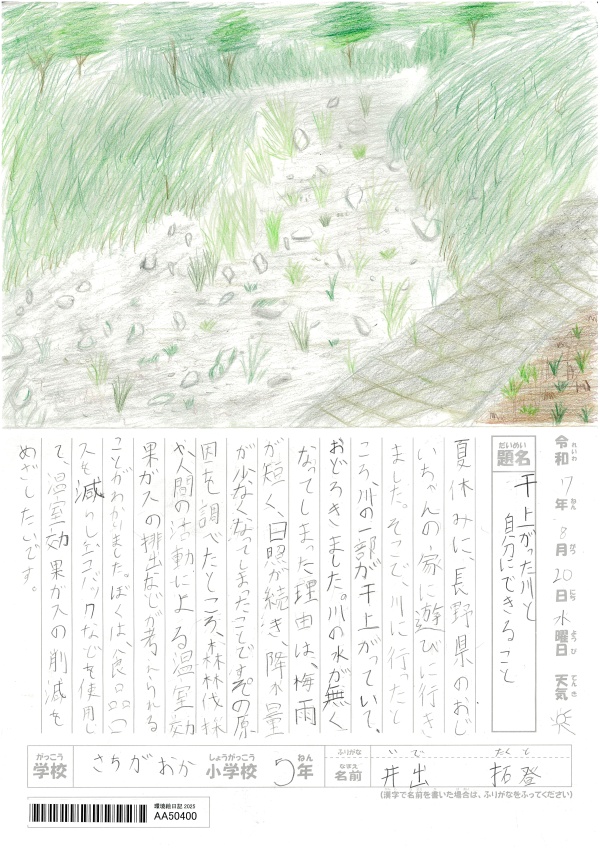 令和7年8月20日水曜日 天気
れいわ ねん がつ にち ようび てんき
だいめい
題名
干上がった川と
自分にできること
夏休みに、長野県のおじ
いちゃんの家に遊びに行き
ました。そこで、川に行ったと
ころ、川の一部が干上がっていて、
おどろきました。川の水が無く
なってしまった理由は、梅雨
が短く、日照が続き、降水量
が少なくなってしまったことです。その原
因を調べたところ、森林伐採
や人間の活動による温室効
果ガスの排出などが考えられる
ことがわかりました。ぼくは、食品ロ
スを減らし、エコバックなどを使用し
て、温室効果ガスの削減を
めざしたいです。
がっこう しょうがっこう ねん ふりがな いで たくと
学校 さちがおか 小学校 5年
なまえ
名前 井出 拓登
(漢字で名前を書いた場合は、ふりがなをふってください)
環境絵日記 2025
AA50400